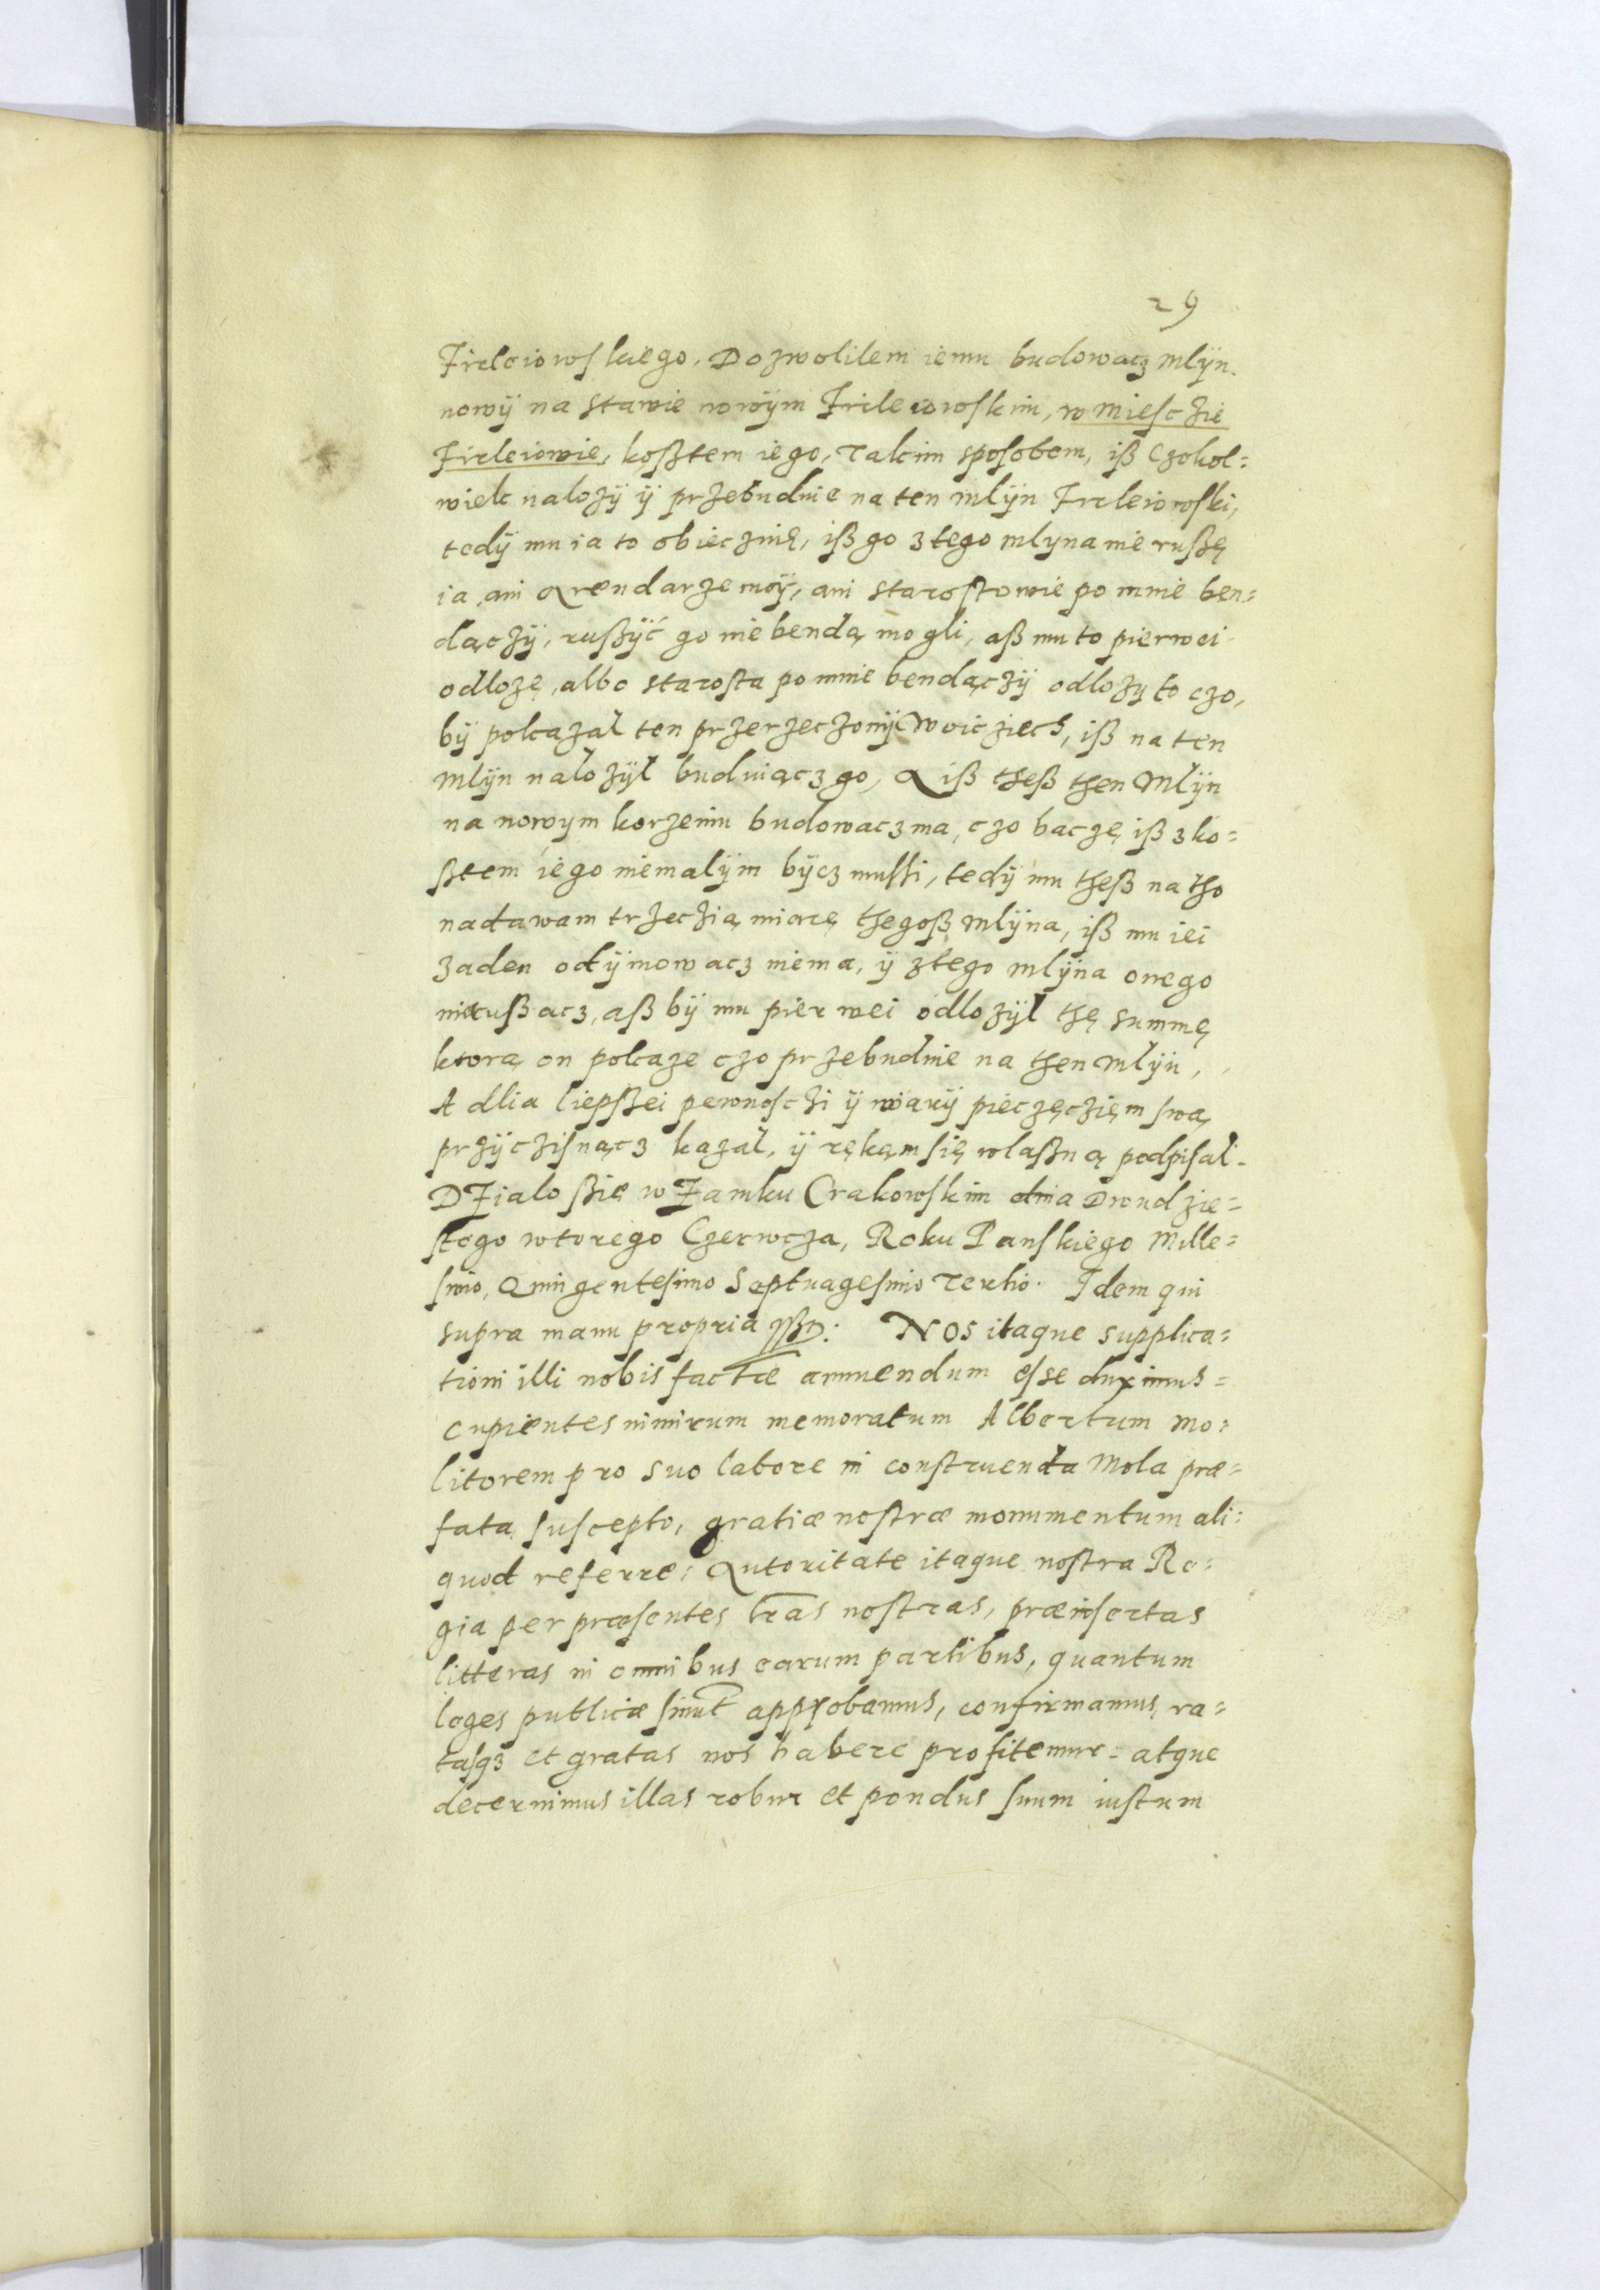 29
Firleiowskiego. Dozwolilem iemu budowacz mlÿn
nowÿ na stawie nowÿm Firleiowskim, w miesczie
Firleiowie, kosztem iego, Takim sposobem, iß Czokol=
wiek nalozÿ ÿ przebudnie na ten mlÿn Firleiowski,
tedÿ mu ia to obiecznię, iß go z tego mlyna nie rußę
ia, ani Arendarze moÿ, ani starostowie po mnie ben=
dączÿ, rußÿć go nie bendą mogli, aß mu to pierwei
odlozę, albo starosta po mnie bendączÿ odlozÿ to czo,
bÿ pokazal ten przerzeczonÿ Woicziech, iß na ten
mlÿn nalozÿl budniącz go, A iß theß then Mlÿn
na nowym korzeniu budowacz ma, czo baczę iß z ko=
ßtem iego niemalÿm bÿcz mussi, tedÿ mu theß na tho
nadawam trzeczią miarę thegoß mlÿna, iß mu iei
zaden odÿmowacz niema, ÿ z tego mlÿna onego
nierußacz, aß bÿ mu pierwei odlozÿl thę summę
ktorą on pokaze czo przebudnie na then mlÿn,
A dlia liepßei pewnosczi ÿ wiarÿ pieczęczięm swą
przÿczisnącz kazal, ÿ rękąm się wlaßną podpisal.
DZialo ßię w Zamku Crakowskim dnia Dwudzie=
stego wtorego Czerwcza, Roku Panskiego Mille=
simo, Quingentesimo Septuagesimo Tertio. Idem qui
supra manu propria ßß: NOS itaque supplica=
tioni illi nobis factæ annuendum esse duximus=
cupientes nimirum memoratum Albertum Mo=
litorem pro suo labore in construenda Mola præ=
fata suscepto, gratiæ nostræ monumentum ali=
quod referre; Autoritate itaque nostra Re=
gia per præsentes lras nostras, præinsertas
litteras in omnibus earum partibus, quantum
leges publicæ sinut approbamus, confirmamus, ra=
tasqз et gratas nos habere profitemur= atque
decernimus illas robur et pondus suum iustum